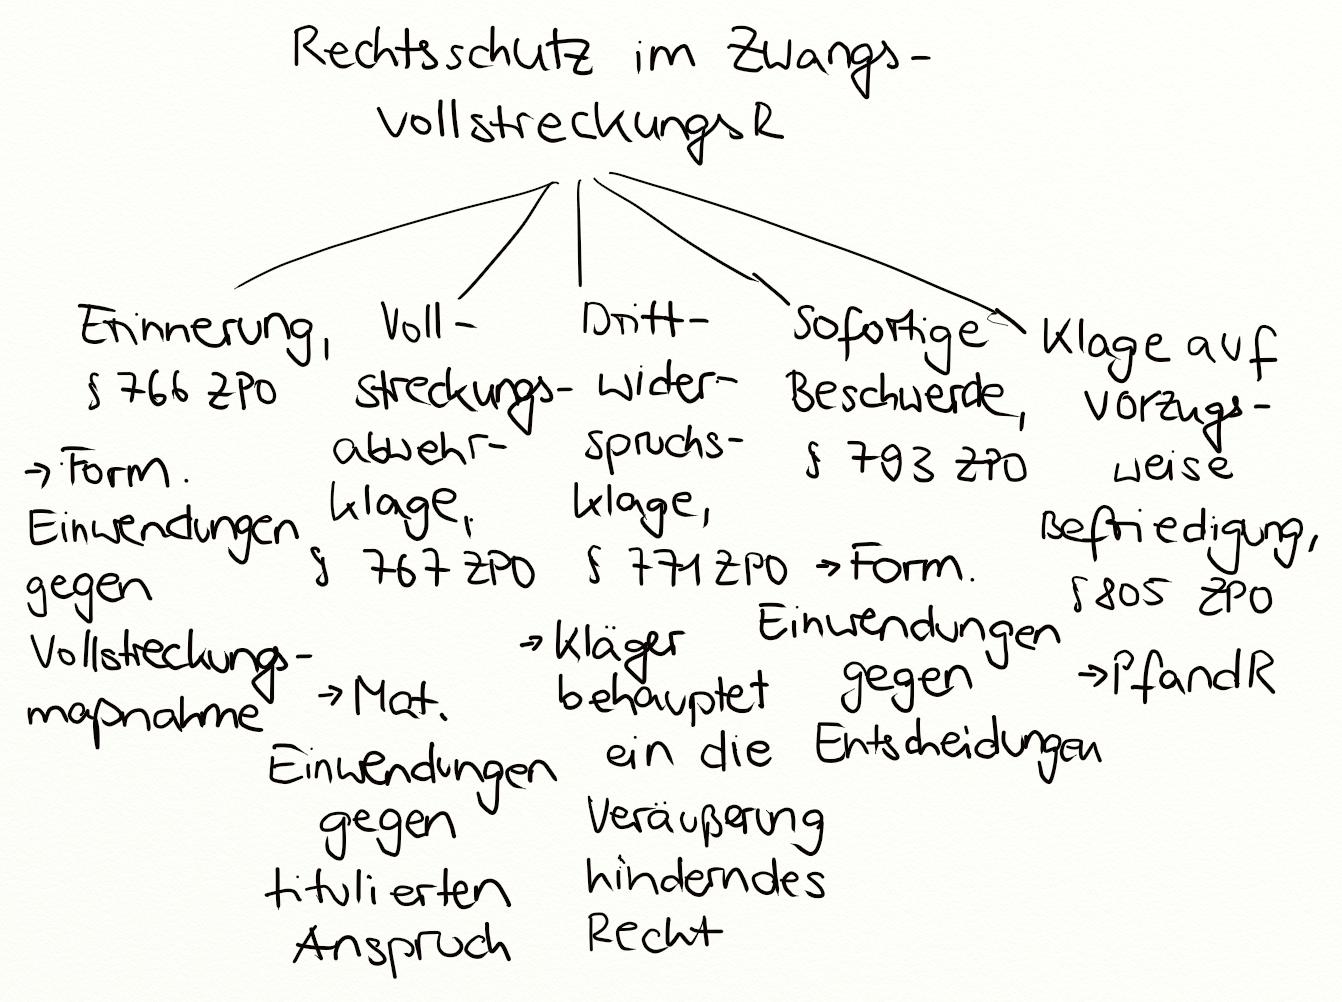 Rechtsschutz im Zwangs-
vollstreckungsR
Erinnerung,
§ 766 ZPO
→ Form.
Einwendungen
gegen
Vollstreckungs-
maßnahme
Voll-
streckungs-
abwehr-
klage,
§ 767 ZPO
→ Mat.
Einwendungen
gegen
titulierten
Anspruch
Dritt-
wider-
spruchs-
klage,
§ 771 ZPO
→ Kläger
behauptet
ein die
Veräußerung
hinderndes
Recht
Sofortige
Beschwerde,
§ 793 ZPO
→ Form.
Einwendungen
gegen
Entscheidungen
Klage auf
vorzugs-
weise
Befriedigung,
§ 805 ZPO
→ PfandR